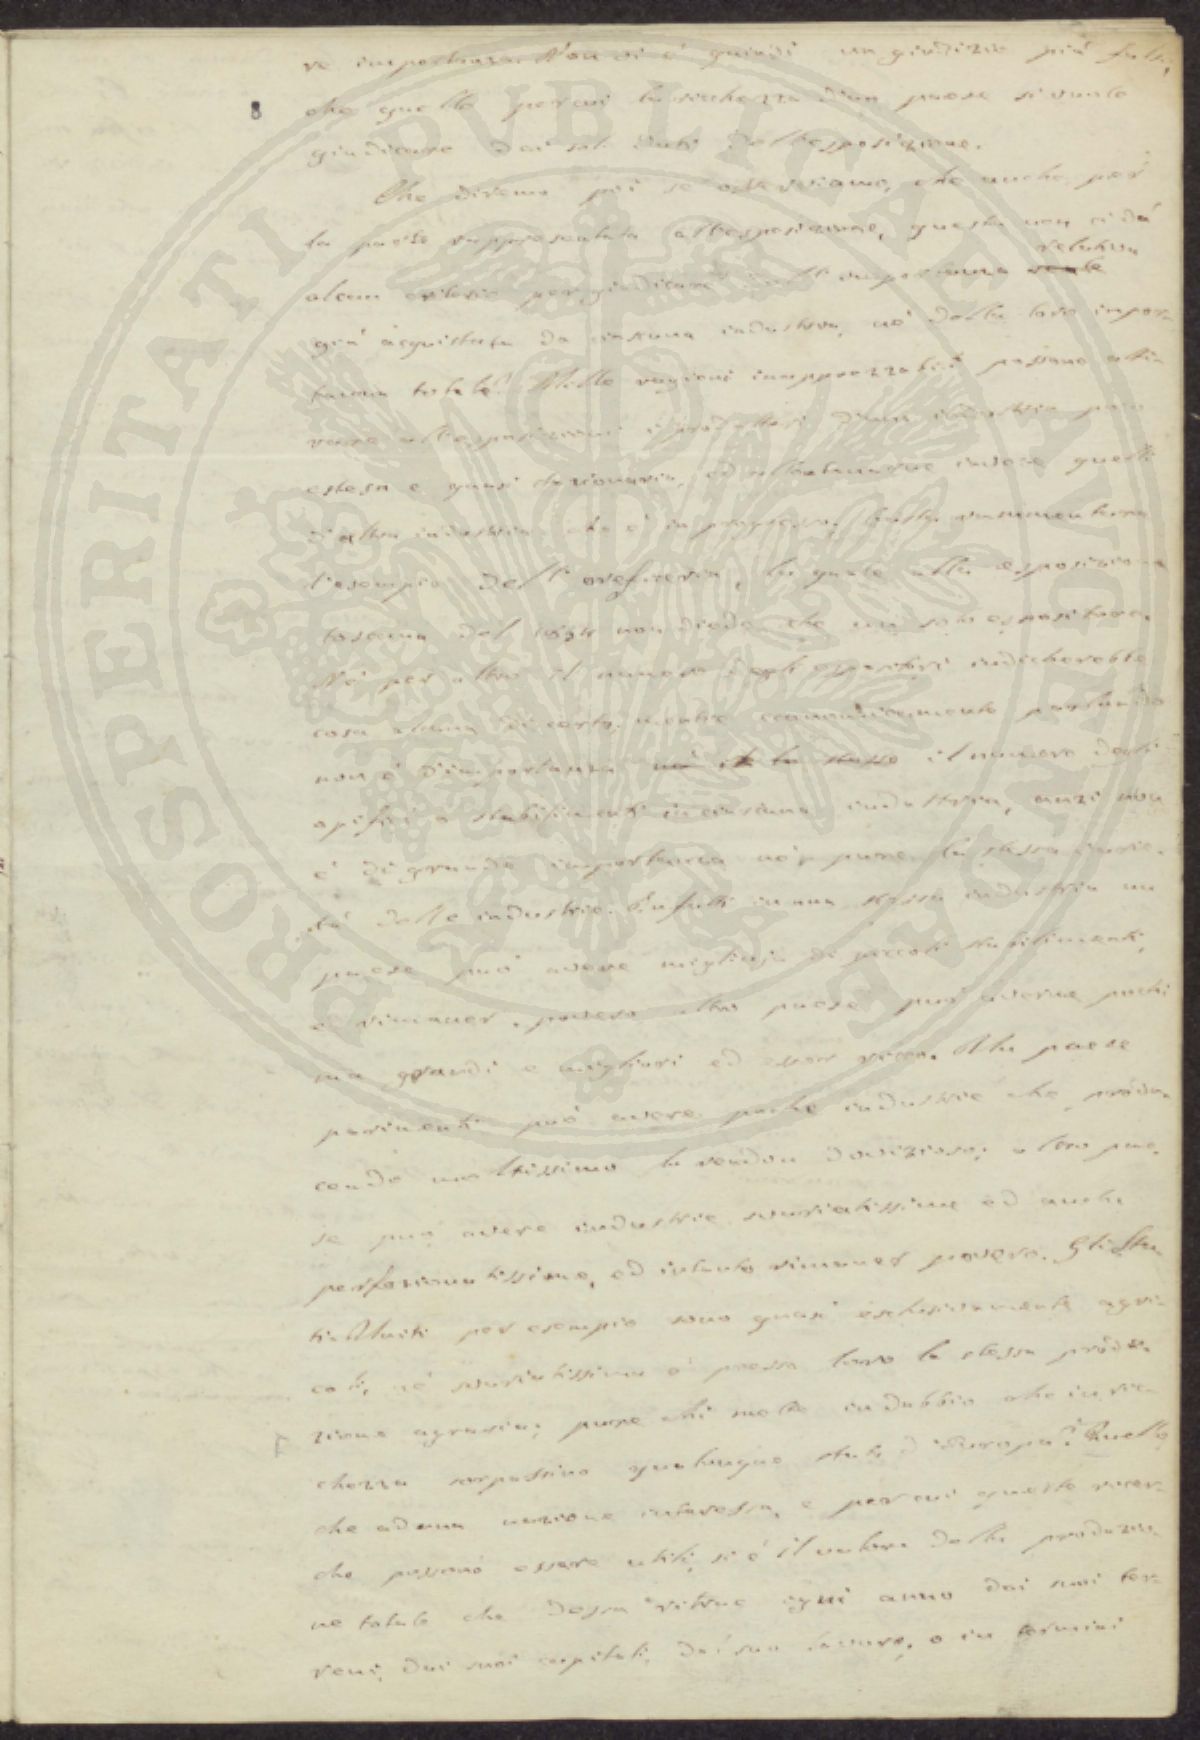 re importanza. Non vi è quindi un giudizio più falso,
8
che quello per cui la ricchezza d'un paese si vuole
giudicare dai soli dati dell'esposizione.
Che diremo poi se osserviamo, che anche per
la parte rappresentata all'esposizione, questa non ci dà
relativa
alcun criterio per giudicare dell'importanza reale
già acquistata da ciascuna industria, nè della loro impor-
tanza totale? Mille ragioni inapprezzabili possono atti-
rare all'esposizioni i produttori d'una industria poco
estesa e quasi stazionaria, ed allontanarne invece quelli
d'altra industria che è in progresso. Basta rammentare
l'esempio dell'oreficeria, la quale alla esposizione
toscana del 1854 non diede che un solo espositore.
Nè per altro il numero degli espositori indicherebbe
cosa alcuna di certo, mentre economicamente parlando
non è d'importanza il numero degli
opifici o stabilimenti in ciascuna industria, anzi non
è di grande importanza nè pure la stessa varie-
tà delle industrie. Infatti in una stessa industria un
paese può avere migliaja di piccoli stabilimenti,
e rimaner povero altro paese può averne pochi
ma grandi e migliori ed esser ricco. Un paese
parimenti può avere poche industrie che produ-
cendo moltissimo lo rendon dovizioso; altro pae-
se può avere industrie svariatissime ed anche
perfezionatissime, ed intanto rimaner povero. Gli Sta-
ti Uniti per esempio sono quasi esclusivamente agri-
coli, nè svariatissima è presso loro la stessa produ-
zione agraria; pure chi mette in dubbio che in ric-
chezza sorpassino qualunque stato d'Europa? Quello
che ad una nazione interessa, e per cui queste ricer-
che possono essere utili, si è il valore della produzio-
ne totale che dessa ritrae ogni anno dai suoi ter-
reni, dai suoi capitali, dal suo lavoro, o in termini
PROSPERITATI PVBLICAE AVGENDAE